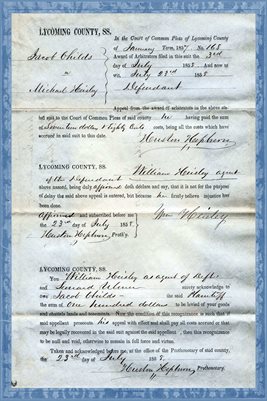 LYCOMING COUNTY, SS.
In the Court of Common Pleas of Lycoming County
of January Term, 1857 No. 168
Jacob Childs
Award of Arbitrators filed in this suit the 3rd
day of July 1858 And now at
vs.
wit, July 23rd 1858
Michael Heisly
Defendant
Appeal from the award of arbitrators in the above
stated suit to the Court of Common Pleas of said county he having paid the sum
of Seventeen dollars & Eighty cents costs, being all the costs which have
accrued in said suit to this date.
Huston Hepburn
LYCOMING COUNTY, SS. William Heisley agent
of the Defendant
above named, being duly affirmed doth declare and say, that it is not for the purpose
of delay the said above appeal is entered, but because he firmly believes injustice has
been done.
Affirmed and subscribed before me
Wm Heisley
the 23rd day of July 1858.
Huston Hepburn, Proth'y.
LYCOMING COUNTY, SS.
You William Heisley as agent of Deft.
and
severally acknowledge to
owe Jacob Childs the Plaintiff
the sum of One Hundred Dollars to be levied of your goods
and chattels lands and tenements. Now the condition of this recognizance is such: that if
said appellant prosecute his appeal with effect and shall pay all costs accrued or that
may be legally recovered in the said suit against the said appellant, then this recognizance
to be null and void, otherwise to remain in full force and virtue.
Taken and acknowledged before me, at the office of the Prothonotary of said county,
the 23rd day of July 1858.
Huston Hepburn, Prothonotary.